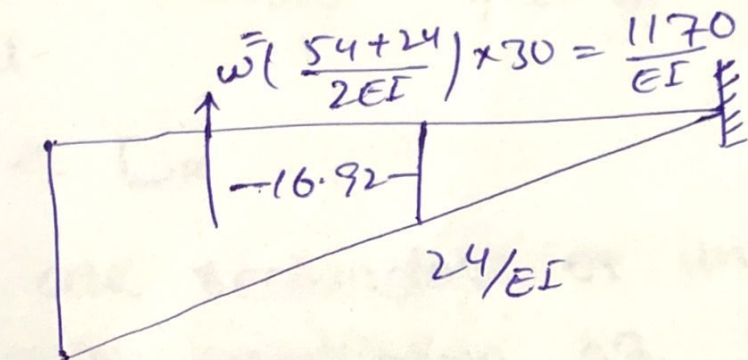 w̄ ( 54+24 / 2EI ) × 30 = 1170 / EI
16.92
24/EI